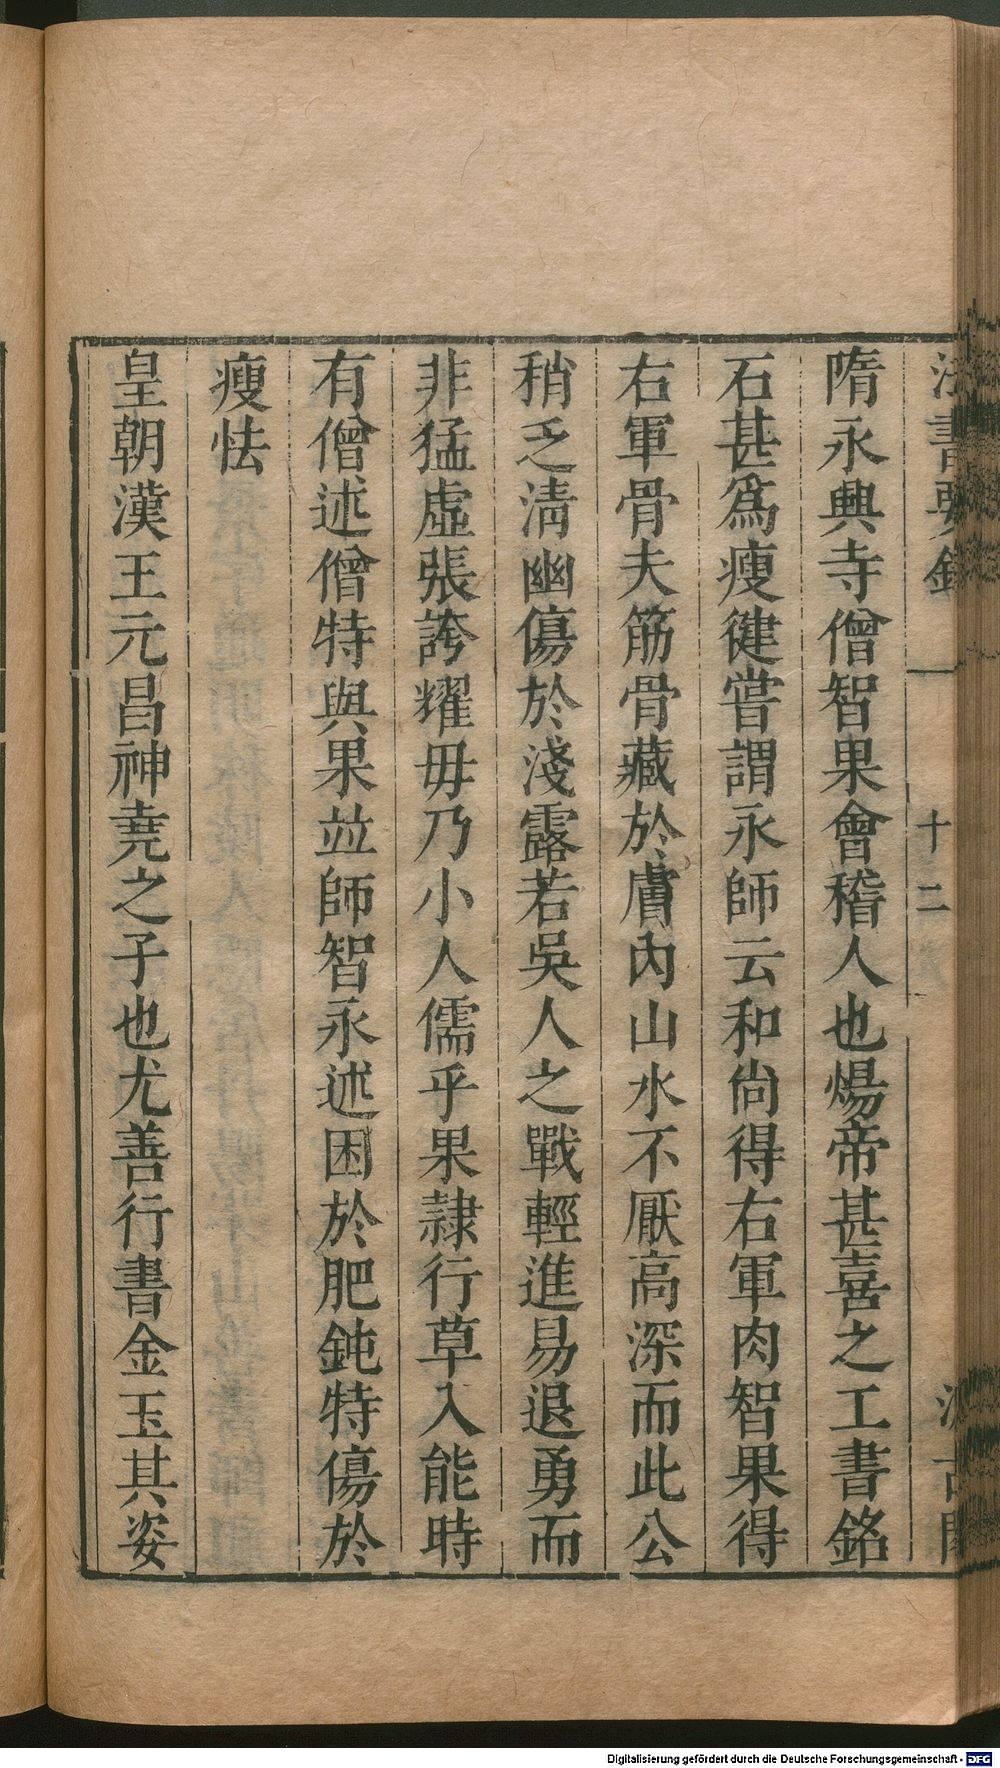 法書要錄
十二
汲古閣
隋永興寺僧智果會稽人也煬帝甚喜之工書銘
石甚爲瘦健嘗謂永師云和尚得右軍肉智果得
右軍骨夫筋骨藏於膚內山水不厭高深而此公
稍乏清幽傷於淺露若吳人之戰輕進易退勇而
非猛虛張誇耀毋乃小人儒乎果隷行草入能時
有僧述僧特與果並師智永述困於肥鈍特傷於
瘦怯
皇朝漢王元昌神堯之子也尤善行書金玉其姿
Digitalisierung gefördert durch die Deutsche Forschungsgemeinschaft - DFG